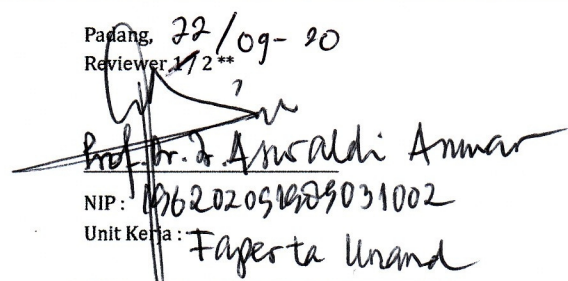 Padang, 22/09-20
Reviewer 1/2 **
Prof. Dr. Ir. Aswaldi Anwar
NIP : 196202051989031002
Unit Kerja : Faperta Unand